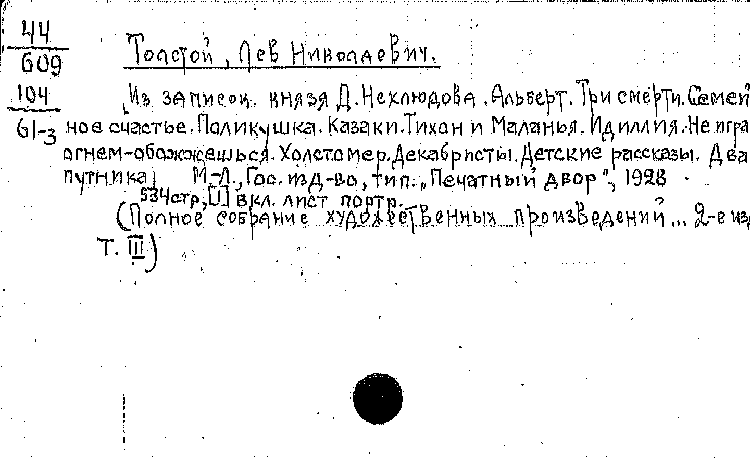 44
609
Толстой, Лев Николаевич.
104
61-3
[Из записок князя Д. Нехлюдова. Альберт. Три смерти. Семей
ное счастье. Поликушка. Казаки. Тихон и Маланья. Идиллия. Не игра
огнем-обожжешься. Холстомер. Декабристы. Детские рассказы. Два
путника] М.-Л., Гос. изд-во, тип. „Печатный двор", 1928
534 стр., [1] вкл. лист портр.
(Полное собрание художественных произведений... 2-е изд
Т. III)